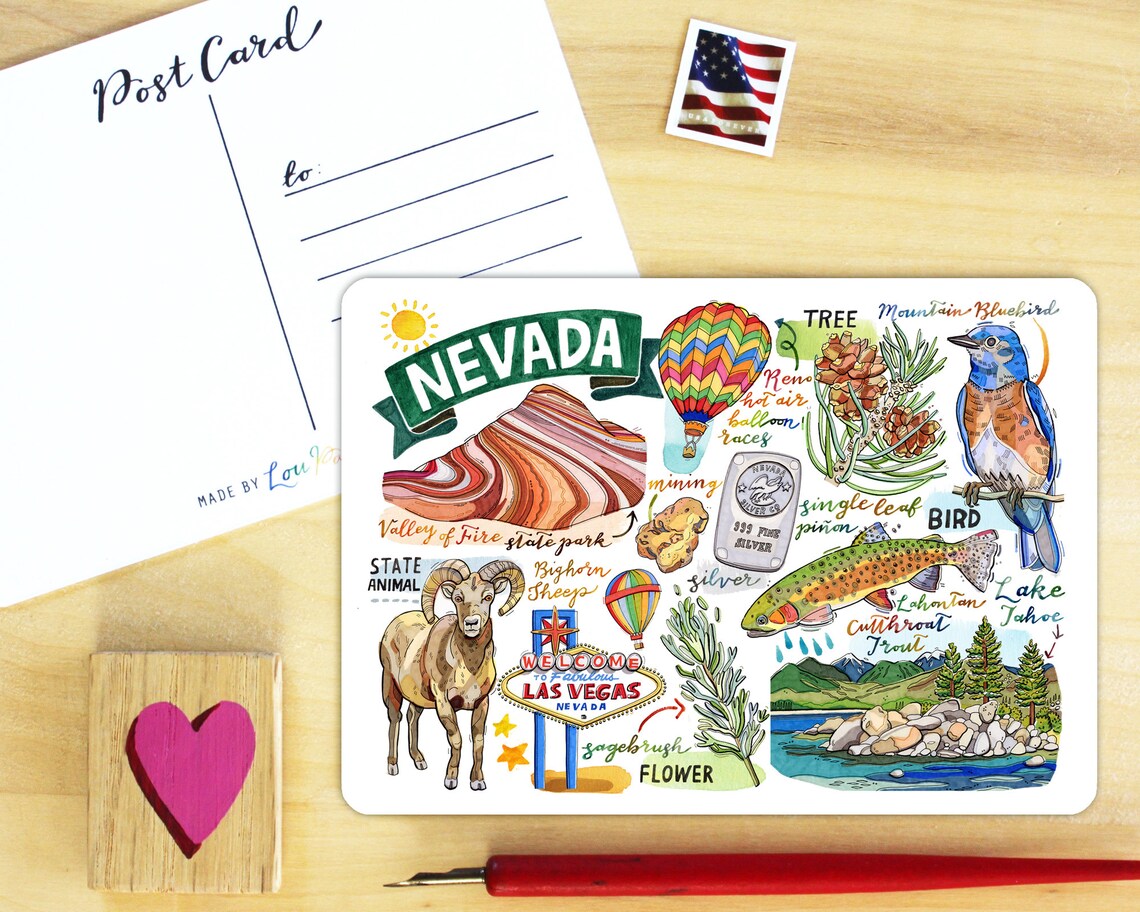 Post Card
to:
MADE BY Lou
USA FOREVER
NEVADA
Valley of Fire state park
Reno
hot air
balloon
races
TREE
single leaf
piñon
Mountain Bluebird
BIRD
mining
NEVADA
SILVER CO
999 FINE
SILVER
silver
STATE
ANIMAL
Bighorn
Sheep
WELCOME
TO Fabulous
LAS VEGAS
NEVADA
sagebrush
FLOWER
Lahontan
Cutthroat
Trout
Lake
Tahoe